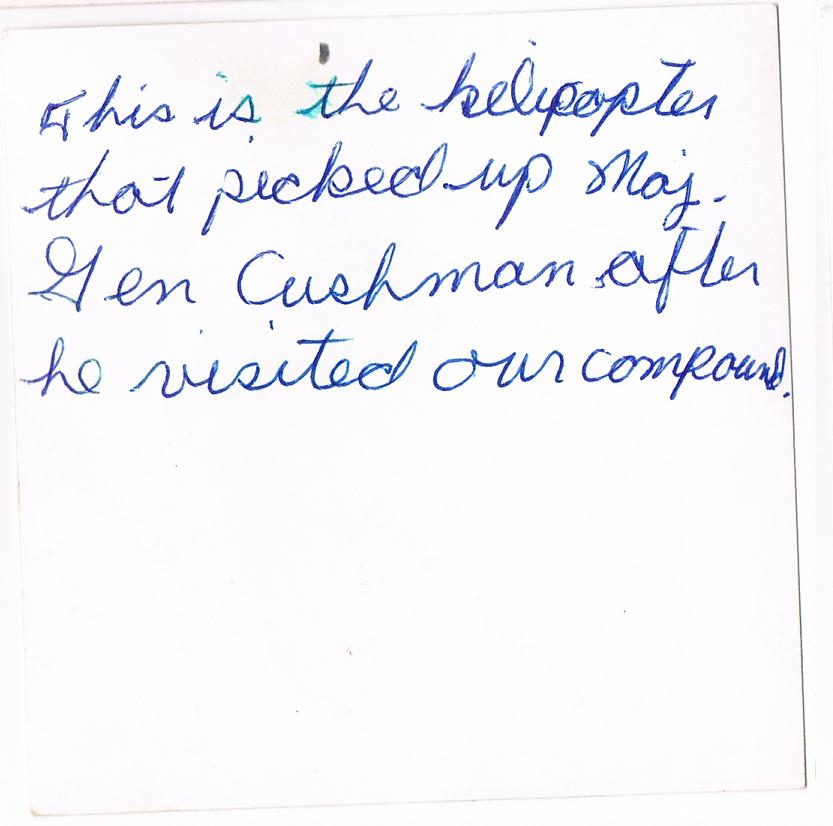 This is the helicopter
that picked up Maj.
Gen Cushman after
he visited our compound.